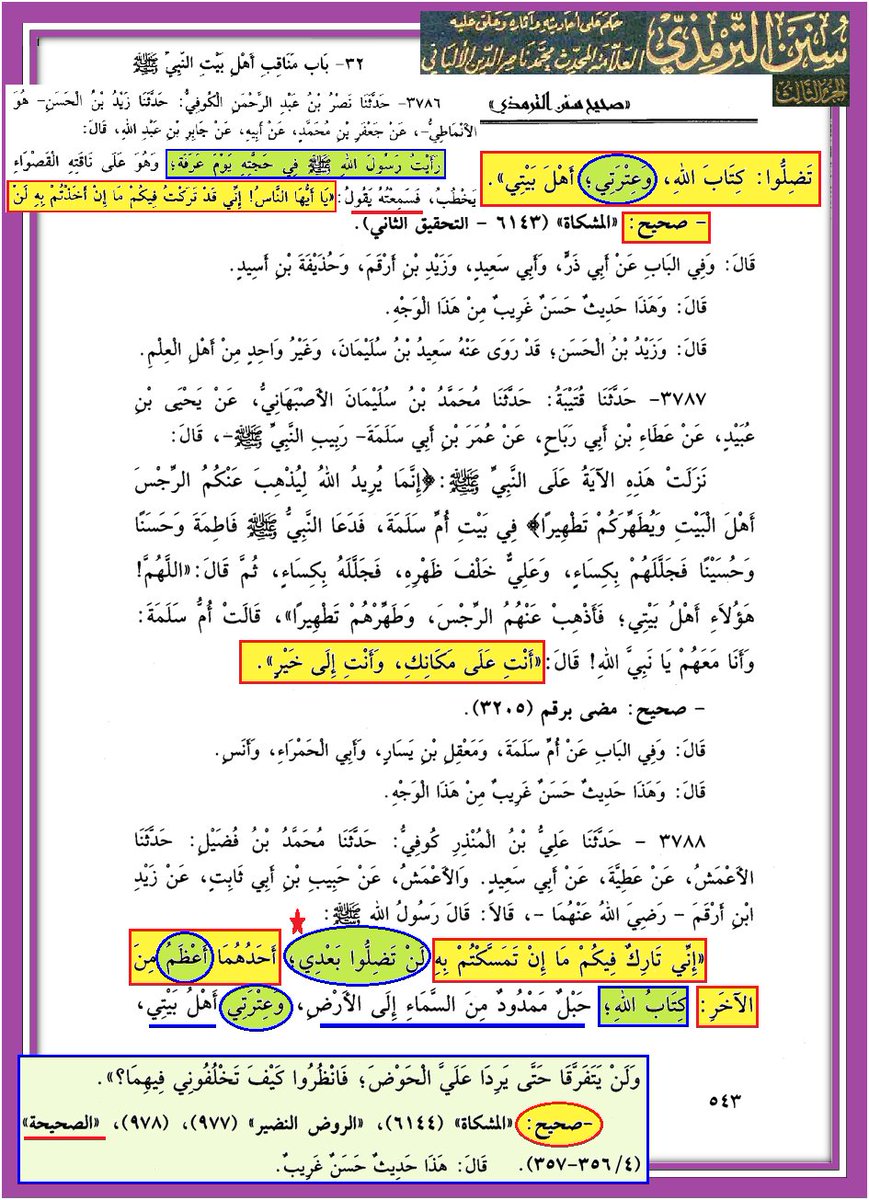 سُنَنُ التِّرْمِذِيِّ
حكم على أحاديثه وآثاره وعلق عليه
العلامة المحدث محمد ناصر الدين الألباني
الجزء الثالث
٣٢- بَاب مَنَاقِبِ أَهْلِ بَيْتِ النَّبِيِّ ﷺ
«صحيح سنن الترمذي»
٣٧٨٦- حَدَّثَنَا نَصْرُ بْنُ عَبْدِ الرَّحْمَنِ الْكُوفِيُّ: حَدَّثَنَا زَيْدُ بْنُ الْحَسَنِ- هُوَ
الأَنْمَاطِيُّ-، عَنْ جَعْفَرِ بْنِ مُحَمَّدٍ، عَنْ أَبِيهِ، عَنْ جَابِرِ بْنِ عَبْدِ اللهِ، قَالَ:
رَأَيْتُ رَسُولَ اللهِ ﷺ فِي حَجَّتِهِ يَوْمَ عَرَفَةَ؛ وَهُوَ عَلَى نَاقَتِهِ الْقَصْوَاءِ
يَخْطُبُ، فَسَمِعْتُهُ يَقُولُ: «يَا أَيُّهَا النَّاسُ! إِنِّي قَدْ تَرَكْتُ فِيكُمْ مَا إِنْ أَخَذْتُمْ بِهِ لَنْ
تَضِلُّوا: كِتَابَ اللهِ، وَعِتْرَتِي؛ أَهْلَ بَيْتِي».
- صحيح: «المشكاة» (٦١٤٣ - التحقيق الثاني).
قَالَ: وَفِي البَابِ عَنْ أَبِي ذَرٍّ، وَأَبِي سَعِيدٍ، وَزَيْدِ بْنِ أَرْقَمَ، وَحُذَيْفَةَ بْنِ أَسِيدٍ.
قَالَ: وَهَذَا حَدِيثٌ حَسَنٌ غَرِيبٌ مِنْ هَذَا الْوَجْهِ.
قَالَ: وَزَيْدُ بْنُ الْحَسَنِ؛ قَدْ رَوَى عَنْهُ سَعِيدُ بْنُ سُلَيْمَانَ، وَغَيْرُ وَاحِدٍ مِنْ أَهْلِ الْعِلْمِ.
٣٧٨٧- حَدَّثَنَا قُتَيْبَةُ: حَدَّثَنَا مُحَمَّدُ بْنُ سُلَيْمَانَ الأَصْبَهَانِيُّ، عَنْ يَحْيَى بْنِ
عُبَيْدٍ، عَنْ عَطَاءِ بْنِ أَبِي رَبَاحٍ، عَنْ عُمَرَ بْنِ أَبِي سَلَمَةَ- رَبِيبِ النَّبِيِّ ﷺ-، قَالَ:
نَزَلَتْ هَذِهِ الآيَةُ عَلَى النَّبِيِّ ﷺ: ﴿إِنَّمَا يُرِيدُ اللهُ لِيُذْهِبَ عَنْكُمُ الرِّجْسَ
أَهْلَ الْبَيْتِ وَيُطَهِّرَكُمْ تَطْهِيرًا﴾ فِي بَيْتِ أُمِّ سَلَمَةَ، فَدَعَا النَّبِيُّ ﷺ فَاطِمَةَ وَحَسَنًا
وَحُسَيْنًا فَجَلَّلَهُمْ بِكِسَاءٍ، وَعَلِيٌّ خَلْفَ ظَهْرِهِ، فَجَلَّلَهُ بِكِسَاءٍ، ثُمَّ قَالَ: «اللَّهُمَّ!
هَؤُلَاءِ أَهْلُ بَيْتِي؛ فَأَذْهِبْ عَنْهُمُ الرِّجْسَ، وَطَهِّرْهُمْ تَطْهِيرًا»، قَالَتْ أُمُّ سَلَمَةَ:
وَأَنَا مَعَهُمْ يَا نَبِيَّ اللهِ! قَالَ: «أَنْتِ عَلَى مَكَانِكِ، وَأَنْتِ إِلَى خَيْرٍ».
- صحيح: مضى برقم (٣٢٠٥).
قَالَ: وَفِي البَابِ عَنْ أُمِّ سَلَمَةَ، وَمَعْقِلِ بْنِ يَسَارٍ، وَأَبِي الْحَمْرَاءِ، وَأَنَسٍ.
قَالَ: وَهَذَا حَدِيثٌ حَسَنٌ غَرِيبٌ مِنْ هَذَا الْوَجْهِ.
٣٧٨٨ - حَدَّثَنَا عَلِيُّ بْنُ الْمُنْذِرِ كُوفِيٌّ: حَدَّثَنَا مُحَمَّدُ بْنُ فُضَيْلٍ: حَدَّثَنَا
الأَعْمَشُ، عَنْ عَطِيَّةَ، عَنْ أَبِي سَعِيدٍ. وَالأَعْمَشُ، عَنْ حَبِيبِ بْنِ أَبِي ثَابِتٍ، عَنْ زَيْدِ
ابْنِ أَرْقَمَ - رَضِيَ اللهُ عَنْهُمَا -، قَالَا: قَالَ رَسُولُ اللهِ ﷺ:
«إِنِّي تَارِكٌ فِيكُمْ مَا إِنْ تَمَسَّكْتُمْ بِهِ لَنْ تَضِلُّوا بَعْدِي؛ أَحَدُهُمَا أَعْظَمُ مِنَ
الآخَرِ: كِتَابُ اللهِ؛ حَبْلٌ مَمْدُودٌ مِنَ السَّمَاءِ إِلَى الأَرْضِ، وَعِتْرَتِي أَهْلُ بَيْتِي،
وَلَنْ يَتَفَرَّقَا حَتَّى يَرِدَا عَلَيَّ الْحَوْضَ؛ فَانْظُرُوا كَيْفَ تَخْلُفُونِي فِيهِمَا؟».
-صحيح: «المشكاة» (٦١٤٤)، «الروض النضير» (٩٧٧)، (٩٧٨)، «الصحيحة»
(٤/ ٣٥٦-٣٥٧). قَالَ: هَذَا حَدِيثٌ حَسَنٌ غَرِيبٌ.
٥٤٣